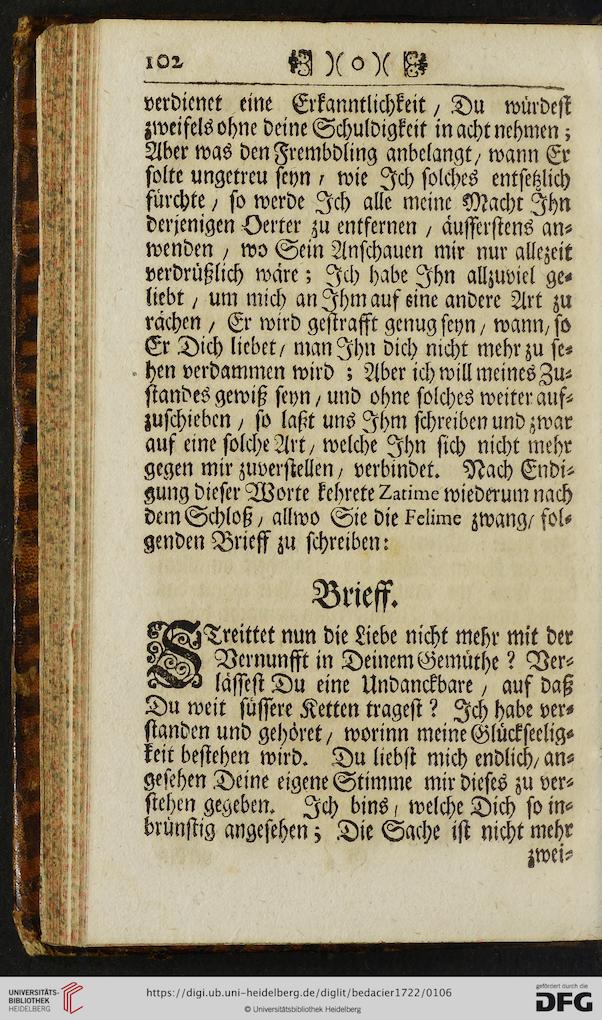 102 )( o )(
verdienet eine Erkanntlichkeit / Du würdest
zweifels ohne deine Schuldigkeit in acht nehmen ;
Aber was den Frembdling anbelangt / wann Er
solte ungetreu seyn / wie Ich solches entsetzlich
fürchte / so werde Ich alle meine Macht Ihn
derjenigen Oerter zu entfernen / äusserstens an-
wenden / wo Sein Anschauen mir nur allezeit
verdrüßlich wäre ; Ich habe Ihn allzuviel ge-
liebt / um mich an Ihm auf eine andere Art zu
rächen / Er wird gestrafft genug seyn / wann / so
Er Dich liebet / man Ihn dich nicht mehr zu se-
hen verdammen wird ; Aber ich will meines Zu-
standes gewiß seyn / und ohne solches weiter auf-
zuschieben / so laßt uns Ihm schreiben und zwar
auf eine solche Art / welche Ihn sich nicht mehr
gegen mir zuverstellen / verbindet. Nach Endi-
gung dieser Worte kehrete Zatime wiederum nach
dem Schloß / allwo Sie die Felime zwang / fol-
genden Brieff zu schreiben:
Brieff.
STreittet nun die Liebe nicht mehr mit der
Vernunfft in Deinem Gemüthe ? Ver-
lässest Du eine Undanckbare / auf daß
Du weit süssere Ketten tragest ? Ich habe ver-
standen und gehöret / worinn meine Glückseelig-
keit bestehen wird. Du liebst mich endlich / an-
gesehen Deine eigene Stimme mir dieses zu ver-
stehen gegeben. Ich bins / welche Dich so in-
brünstig angesehen ; Die Sache ist nicht mehr
zwei-
UNIVERSITÄTS-
BIBLIOTHEK
HEIDELBERG
https://digi.ub.uni-heidelberg.de/diglit/bedacier1722/0106
© Universitätsbibliothek Heidelberg
gefördert durch die
DFG